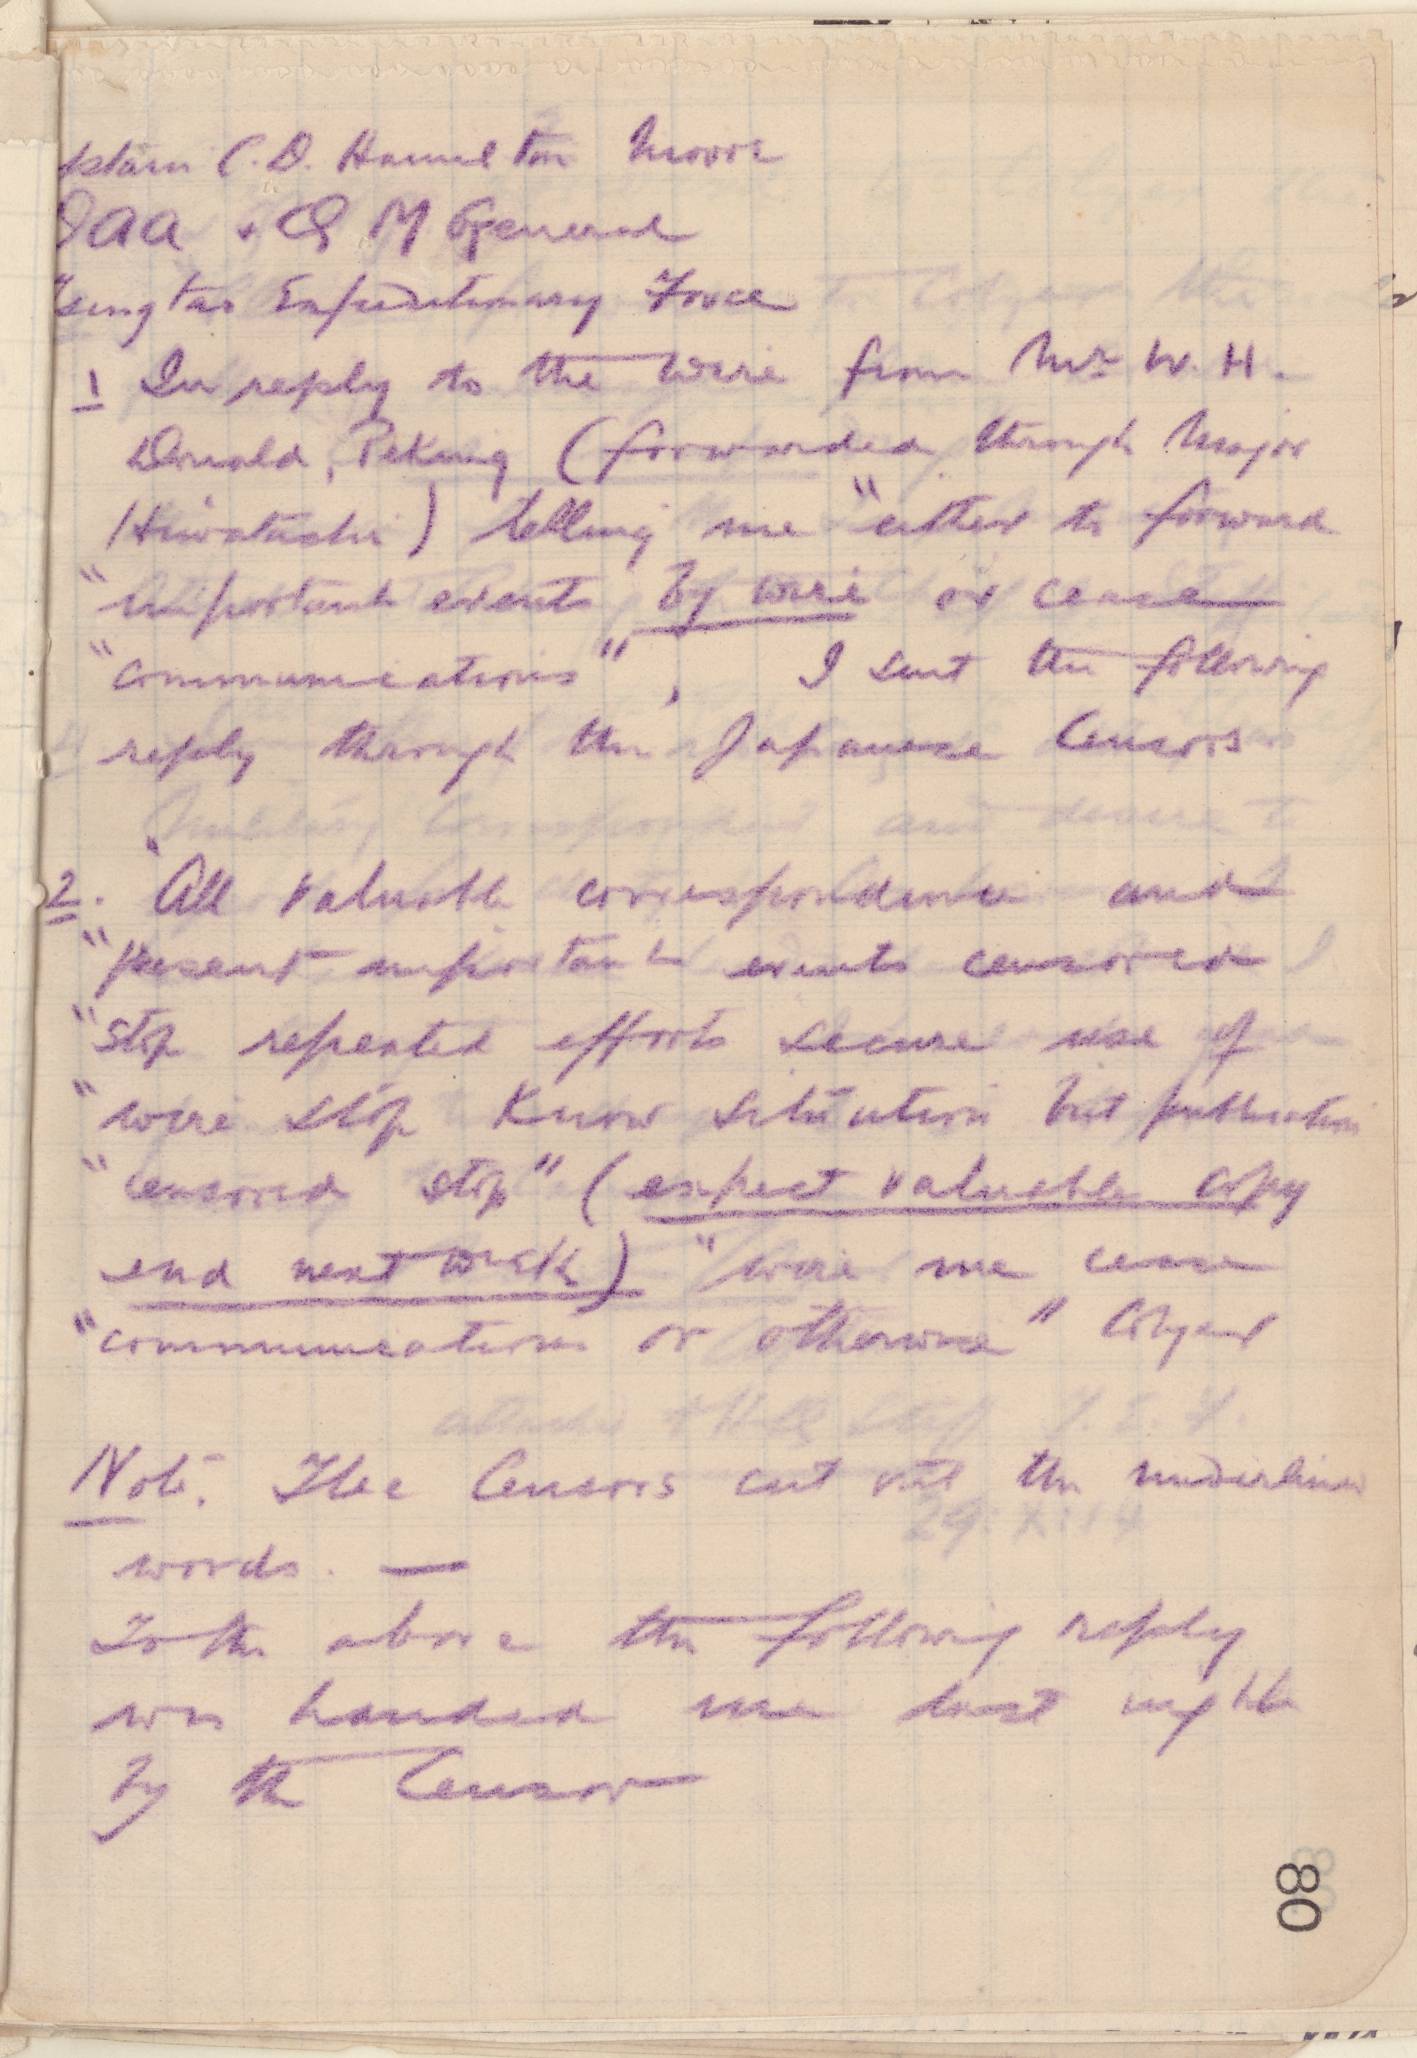 ptain C.D. Hamilton Moore
DAA + Q M General
Tsingtao Expeditionary Force
1 In reply to the wire from Mr W. H.
Donald, Peking (forwarded through Major
Hiwatashi) telling me "either to forward
"important events by wire or cease
"communications", I sent the following
reply through the Japanese Censors
2. "All valuable correspondence and
"present important events censored
"stop repeated efforts secure use of
"wire stop Know situation but publication
"censored stop" (expect valuable copy
end next week) "wire me cease
"communications or otherwise"
Note. The Censors cut out the underlined
words. —
To the above the following reply
was handed me last night
by the Censor
80